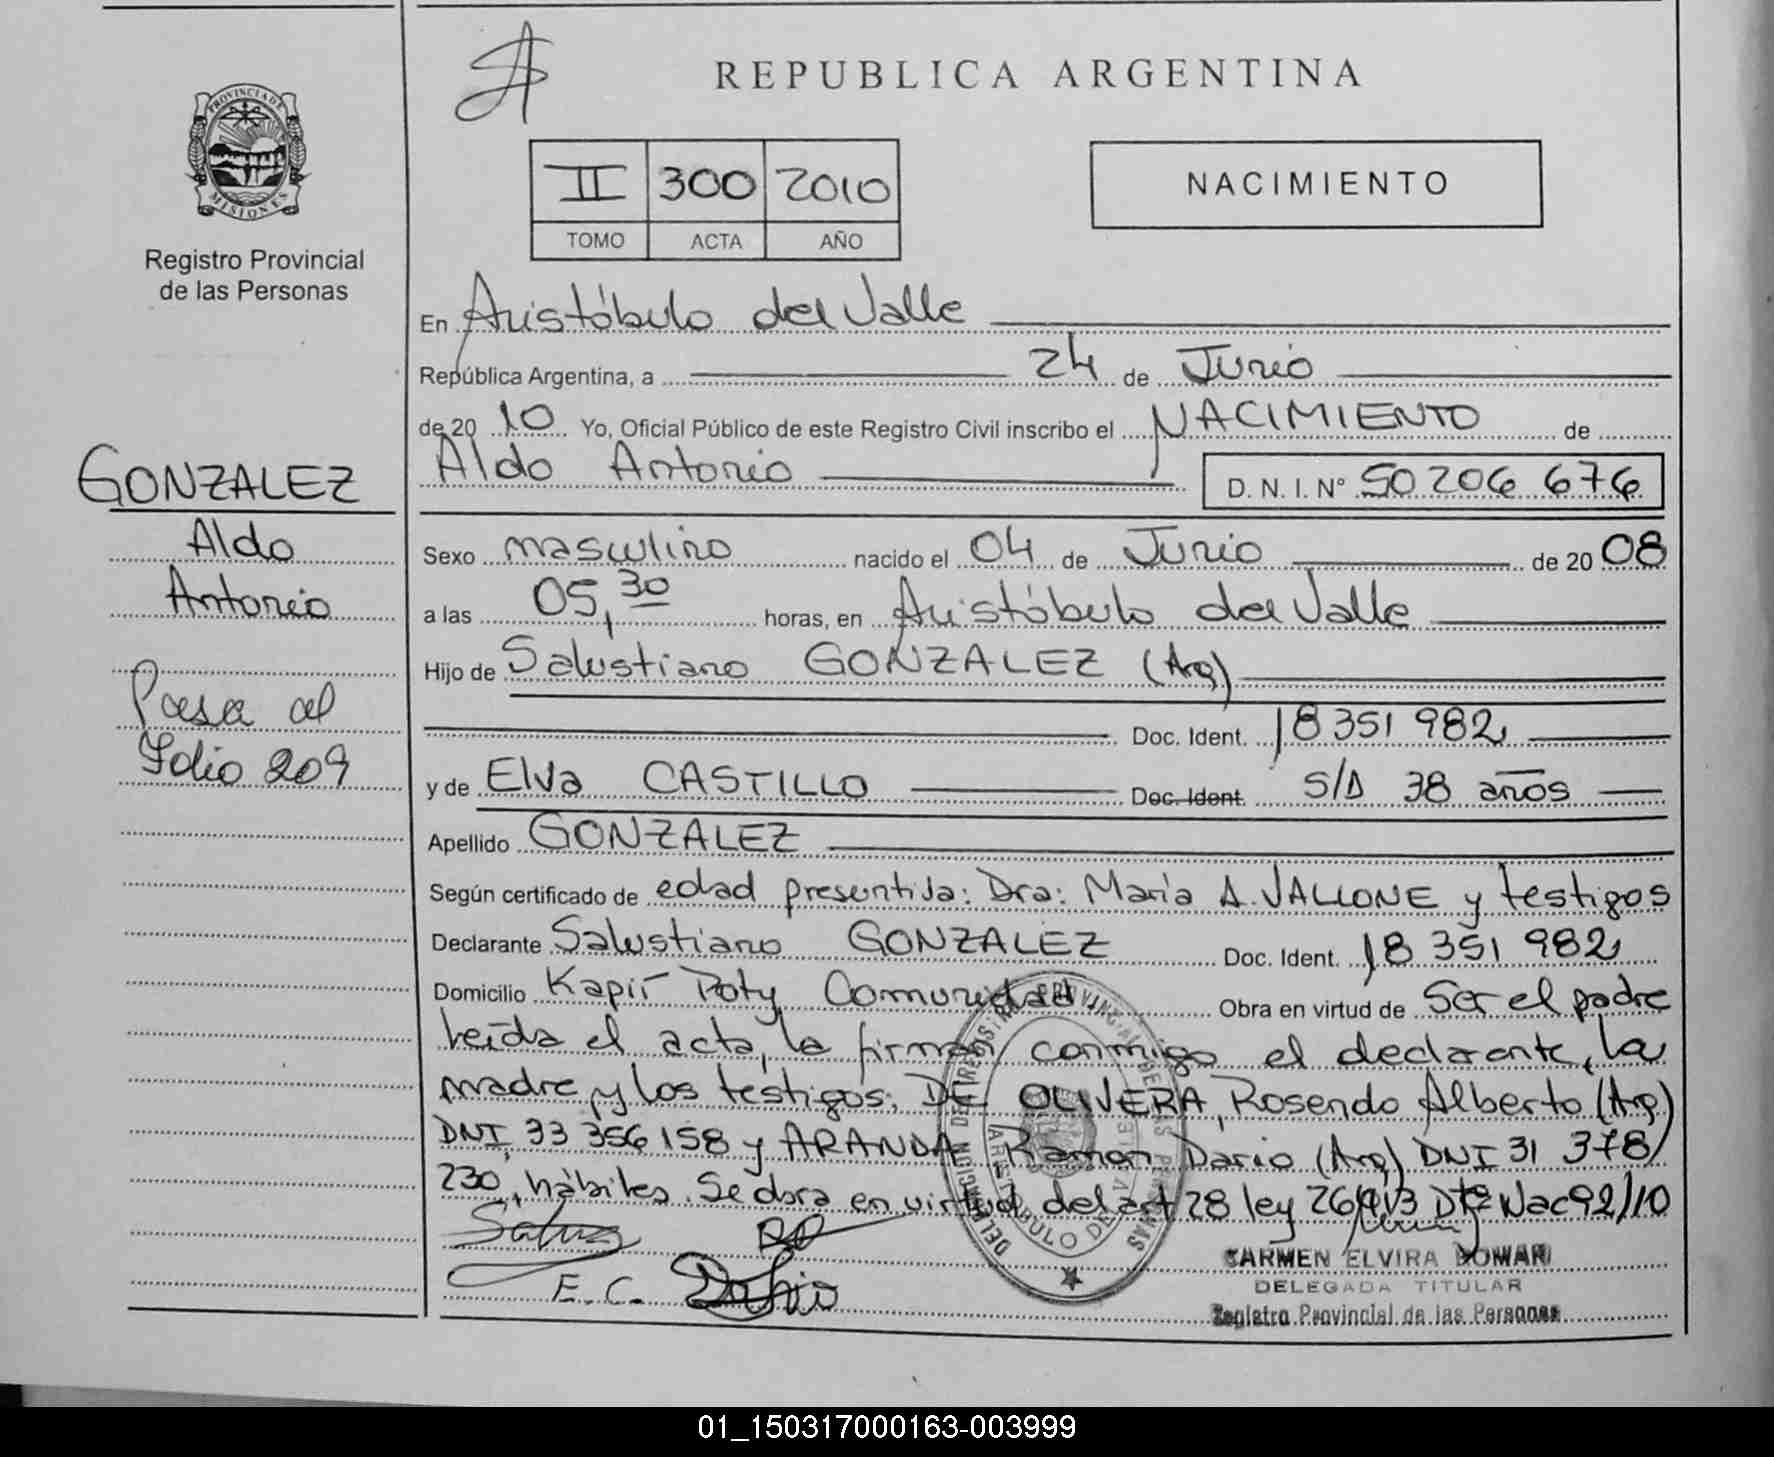 REPUBLICA ARGENTINA
PROVINCIA DE
MISIONES
Registro Provincial
de las Personas
II 300 2010
TOMO ACTA AÑO
NACIMIENTO
GONZALEZ
Aldo
Antonio
Pasa al
Folio 209
En Aristóbulo del Valle
República Argentina, a 24 de Junio
de 20 10 Yo, Oficial Público de este Registro Civil inscribo el NACIMIENTO de
Aldo Antonio D. N. I. Nº 50 206 676
Sexo masculino nacido el 04 de Junio de 20 08
a las 05,30 horas, en Aristóbulo del Valle
Hijo de Salustiano GONZALEZ (Arg)
Doc. Ident. 18 351 982
y de Elva CASTILLO Doc. Ident. S/D 38 años
Apellido GONZALEZ
Según certificado de edad presuntiva: Dra: María A. VALLONE y testigos
Declarante Salustiano GONZALEZ Doc. Ident. 18 351 982
Domicilio Kapií Poty Comunidad Obra en virtud de Ser el padre
Leída el acta, la firman conmigo el declarante, la
madre y los testigos: DE OLIVERA, Rosendo Alberto (Arg)
DNI 33 356 158 y ARANDA, Ramon Dario (Arg) DNI 31 378
230, hábiles. Se dora en virtud del art 28 ley 26413 Dto Nac 92/10
E. C.
CARMEN ELVIRA
DELEGADA TITULAR
Registro Provincial de las Personas
01_150317000163-003999